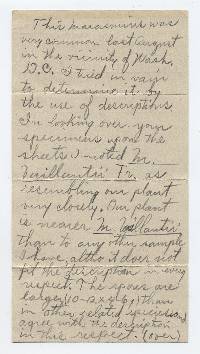 This marasmius was
very common last August
in the vicinity of Wash.
D.C. I tried in vain
to determine it by
the use of descriptions.
In looking over your
specimens upon the
sheets I noted M.
Vaillantii Fr. as
resembling our plant
very closely. Our plant
is nearer M. Vaillantii
than to any other sample
I have, altho it does not
fit the description in every
respect. The spores are
larger (10-12 x 6 µ) than
in other related species and
agree with the description
in this respect. (over)